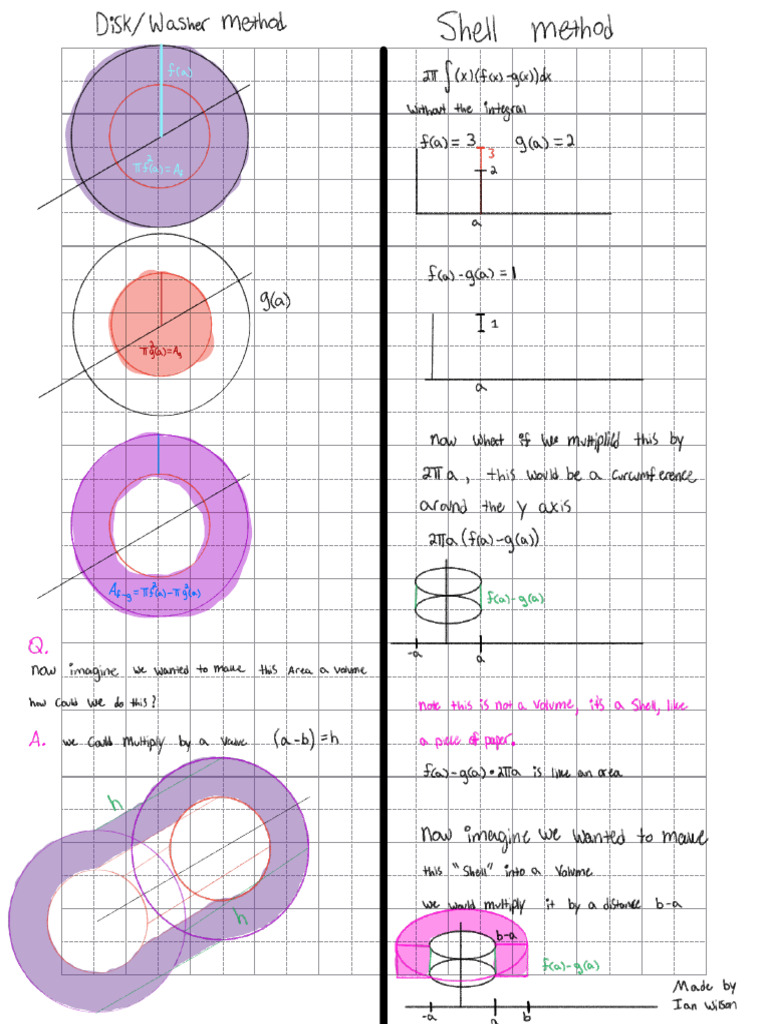 Disk/Washer method
f(a)
πf²(a)=A_f
g(a)
πg²(a)=A_g
A_f-g=πf²(a)-πg²(a)
Q.
now imagine we wanted to make this Area a volume
how could we do this?
A. we could multiply by a value (a-b)=h
h
h
Shell method
2π∫(x)(f(x)-g(x))dx
without the integral
f(a)=3 g(a)=2
3
2
a
f(a)-g(a)=1
1
a
now what if we multiplied this by
2πa, this would be a circumference
around the y axis
2πa(f(a)-g(a))
f(a)-g(a)
-a a
note this is not a volume, it's a shell, like
a piece of paper.
f(a)-g(a)•2πa is like an area
now imagine we wanted to make
this "Shell" into a volume
we would multiply it by a distance b-a
b-a
f(a)-g(a)
-a a b
Made by
Ian Wilson